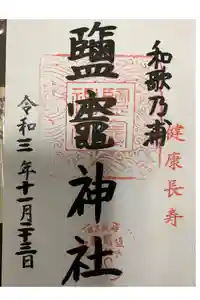 和歌乃浦
健康長寿
鹽竈神社
令和三年十一月二十三日